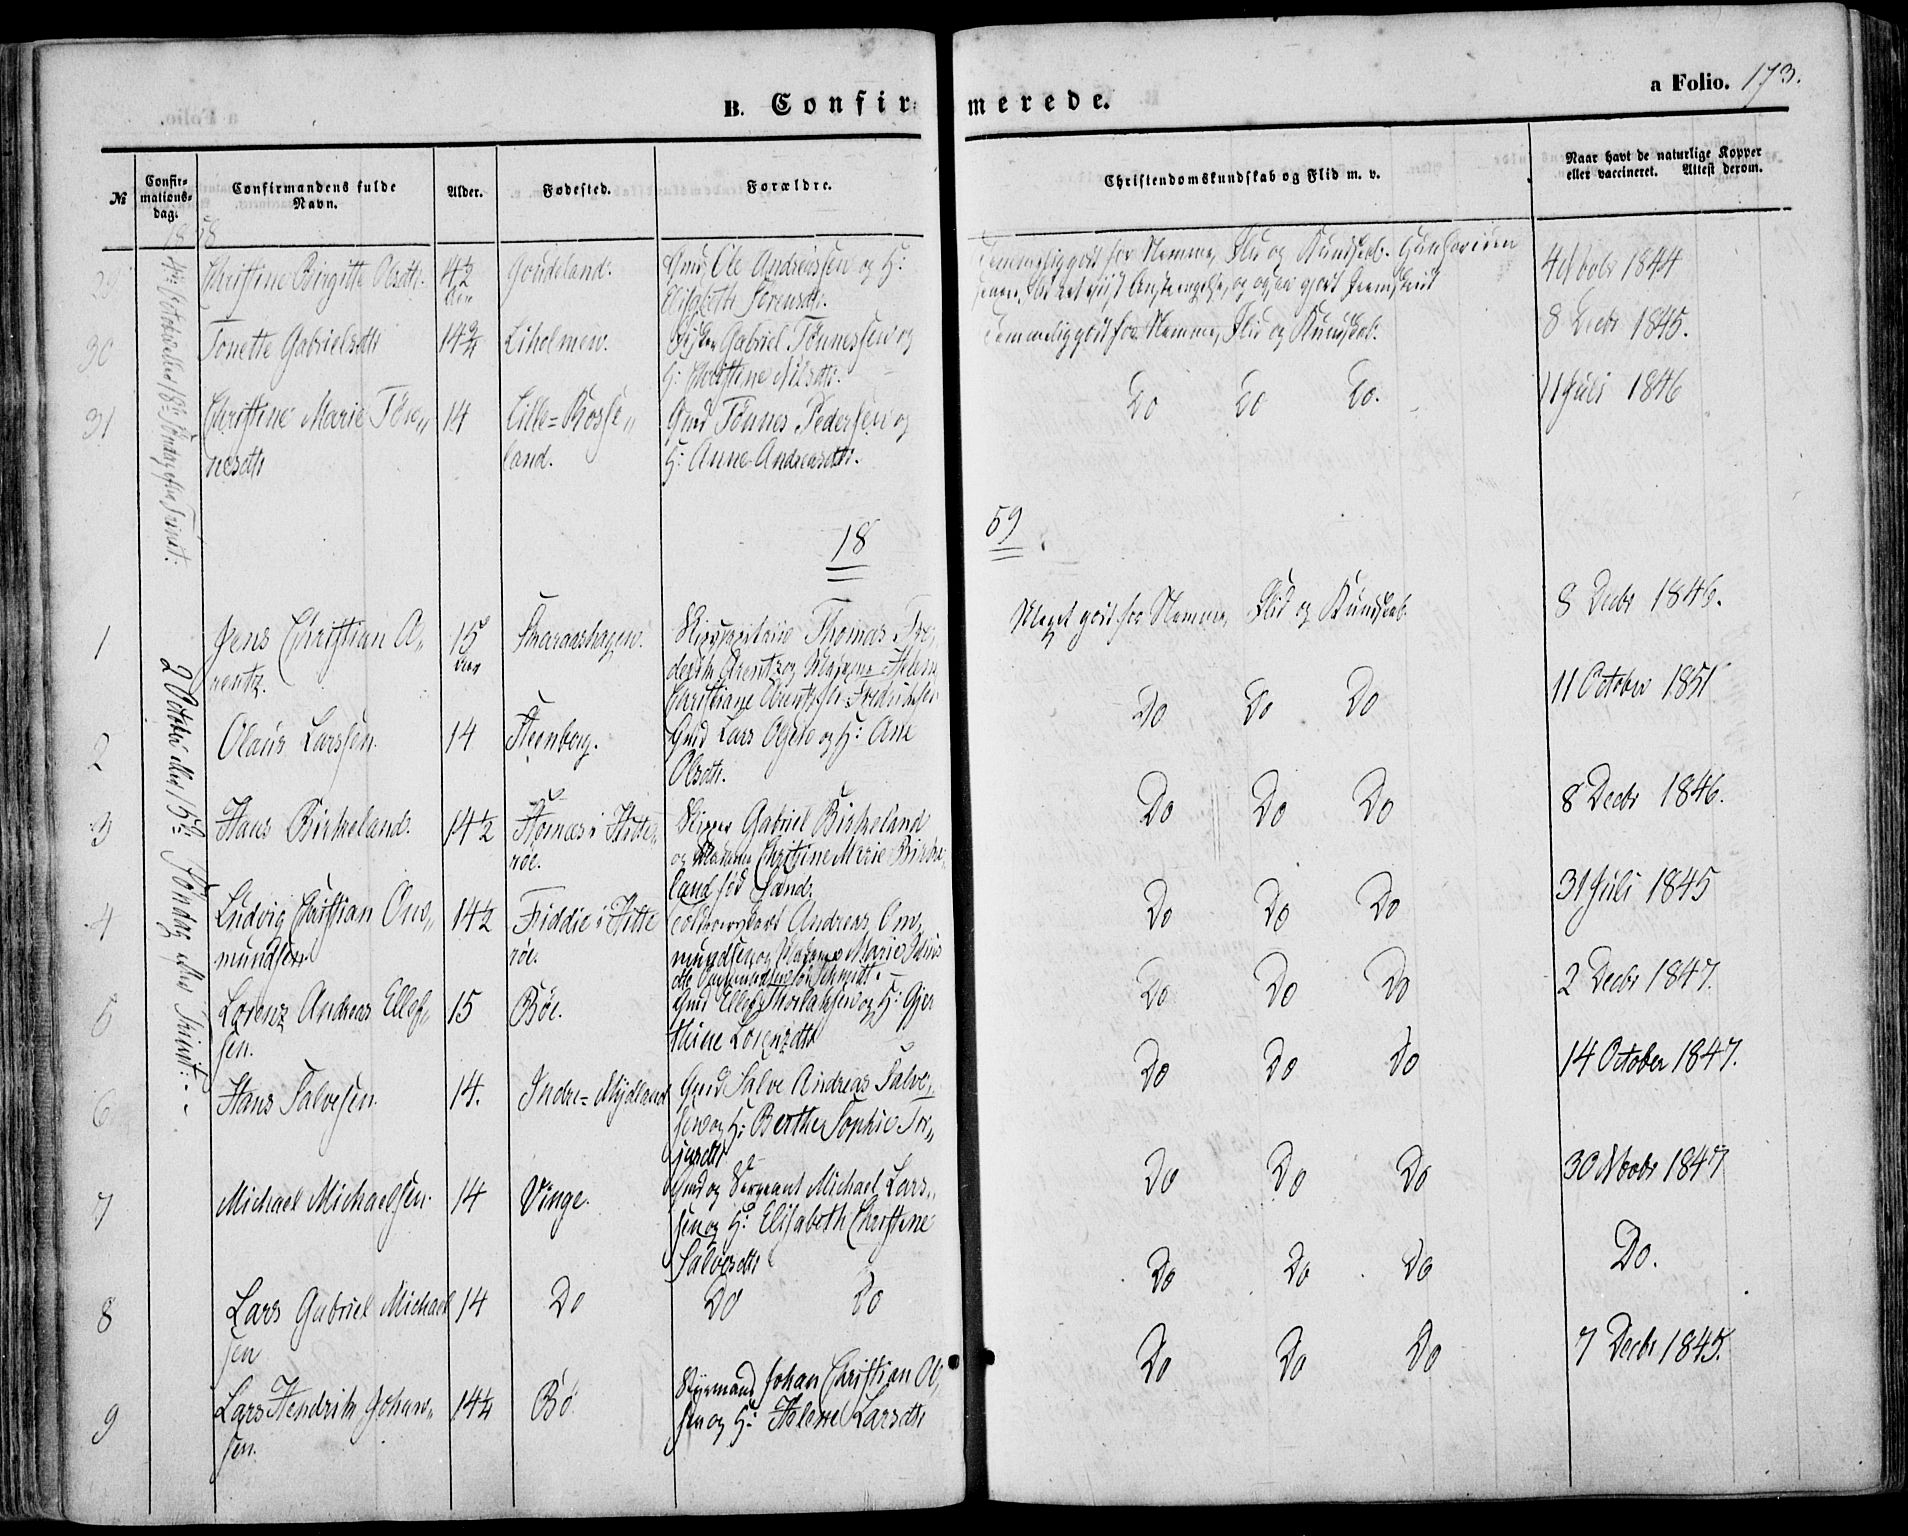 B. Confirmerede.
a Folio. 173.
№
Confirmationsdag.
Confirmandens fulde Navn.
Alder.
Fødested.
Forældre.
Christendomskundskab og Flid m. v.
Naar havt de naturlige Kopper eller vaccineret. Attest derom.
1858
Christine Birgitte Olsdtr.
Goudeland.
Gmd Ole Andreassen og H:
Elisabeth Sørensdtr.
Temmelig godt for Nemme, Flid og Kundskab.
1844
30
Tonette Gabrielsdtr
14¾
Liholmen.
Gabriel Tønnessen og
H: Christine Nilsdtr.
Temmelig godt for Nemme, Flid og Kundskab.
8 Decbr 1845.
31
Christine Marie Tøn„
nesdtr
14
Lille=Rosse„
land.
Gmd Tønnes Pedersen og
H: Anne Andreasdtr.
Do Do Do.
11 Juli 1846
18 59
2 October
Søndag
1
Jens Christian A„
rentz.
15
Thomas Fre„
derik Arentz og Madame Helene
Christiane Arentz
Meget godt for Nemme, Flid og Kundskab
8 Decbr 1846.
2
Olaus Larssen.
14
Steenborg.
Gmd Lars Olsen og H: Ane
Olsdtr.
Do Do Do
11 October 1851
3
Hans Birkeland.
14½
i Hitte„
røe.
Skipper Gabriel Birkeland
og Madame Christine Marie Birke„
land fød Sand.
Do Do Do
8 Decbr 1846.
4
Ludvig Christian Om„
mundsen
14½
Fiddie i Hitte
røe.
Andreas Om„
mundsen og Madame Marie
Do Do Do
31 Juli 1845
5
Lorenz Andreas Ellef„
sen.
15
Bøe.
Gmd Ellef Thorlaksen og H: Gjer
thine Lorenzdtr
Do Do Do
2 Decbr 1847.
6
Hans Salvesen.
14.
Indre=Mydland
Gmd Salve Andreas Salve„
sen og H: Berthe Sophie
Do Do Do
14 October 1847.
7
Michael Michaelsen.
14
Vinge.
Gmd og Sergeant Michael Lars„
sen og H: Elisabeth Christine
Salvesdtr
Do Do Do
30 Novbr 1847
8
Lars Gabriel Michael
sen
14
Do
Do Do
Do Do Do
Do.
9
Lars Hendrik Johan„
sen.
14¼
Bø
Styrmand Johan Christian Ol„
sen og H: Helene Larsdtr
Do Do Do
7 Decbr 1845.